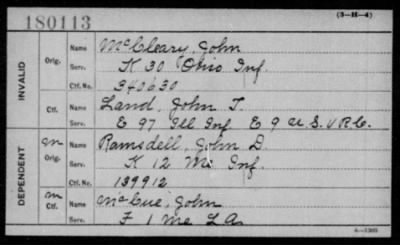 180113 (3-H-4)
INVALID
Orig. Name McCleary, John
Serv. K 30 Ohio Inf.
Ctf. No. 340630
Ctf. Name Land, John T.
Serv. E 97 Ill Inf E 9 U.S. V.R.C.
DEPENDENT
m Orig. Name Ramsdell, John D.
Serv. K 12 Me Inf.
Ctf. No. 139912
m Ctf. Name McCue, John
Serv. F 1 Me L A.